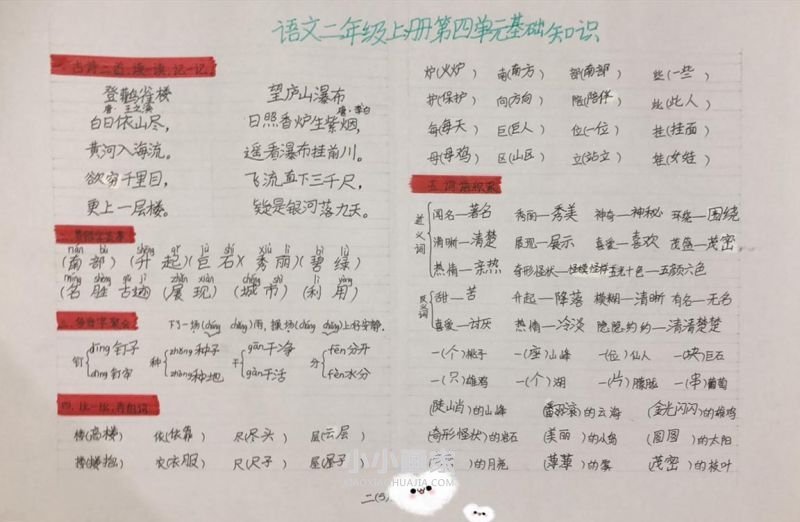 语文二年级上册第四单元基础知识
一.古诗二首,读一读,记一记。
登鹳雀楼
唐·王之涣
白日依山尽,
黄河入海流。
欲穷千里目,
更上一层楼。
望庐山瀑布
唐·李白
日照香炉生紫烟,
遥看瀑布挂前川。
飞流直下三千尺,
疑是银河落九天。
nán bù shēng qǐ jù shí xiù lì bì lǜ
(南部)(升起)(巨石)(秀丽)(碧绿)
míng shèng gǔ jì zhǎn xiàn chéng shì lì yòng
(名胜古迹)(展现)(城市)(利用)
下了一场(cháng chǎng)雨,操场(cháng chǎng)上好安静。
钉 dīng钉子 dìng钉牢
种 zhǒng种子 zhòng种地
干 gān干净 gàn干活
分 fēn分开 fèn水分
四.比一比,再组词
楼(高楼) 依(依靠) 尽(尽头) 层(云层)
搂(搂抱) 衣(衣服) 尺(尺子) 屋(屋子)
炉(火炉) 南(南方) 部(南部) 些(一些)
护(保护) 向(方向) 陪(陪伴) 此(此人)
每(每天) 巨(巨人) 位(一位) 挂(挂面)
母(母鸡) 区(山区) 立(站立) 娃(女娃)
五.词语积累
近义词
闻名—著名 秀丽—秀美 神奇—神秘 环绕—围绕
清晰—清楚 展现—展示 喜爱—喜欢 茂盛—茂密
热情—亲热 奇形怪状—怪模怪样 五光十色—五颜六色
反义词
甜—苦 升起—降落 模糊—清晰 有名—无名
喜爱—讨厌 热情—冷淡 隐隐约约—清清楚楚
一(个)桃子 一(座)山峰 一(位)仙人 一(块)巨石
一(只)雄鸡 一(个)湖 一(片)朦胧 一(串)葡萄
(陡峭)的山峰 (翻滚)的云海 (金光闪闪)的雄鸡
(奇形怪状)的岩石 (美丽)的小岛 (圆圆)的太阳
的月亮 (薄薄)的雾 (茂密)的枝叶
二(5)
小小画家
XIAOXIAOHUAJIA.COM